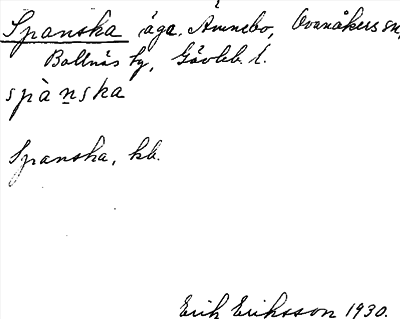 Spanska äga. Ämnebo, Ovanåkers sn,
Bollnäs tg, Gävleb. l.
spànska
Spanska, kb.
Erik Eriksson 1930.